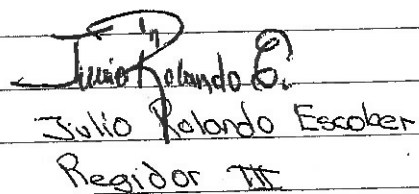 Julio Rolando E.
Julio Rolando Escober
Regidor III